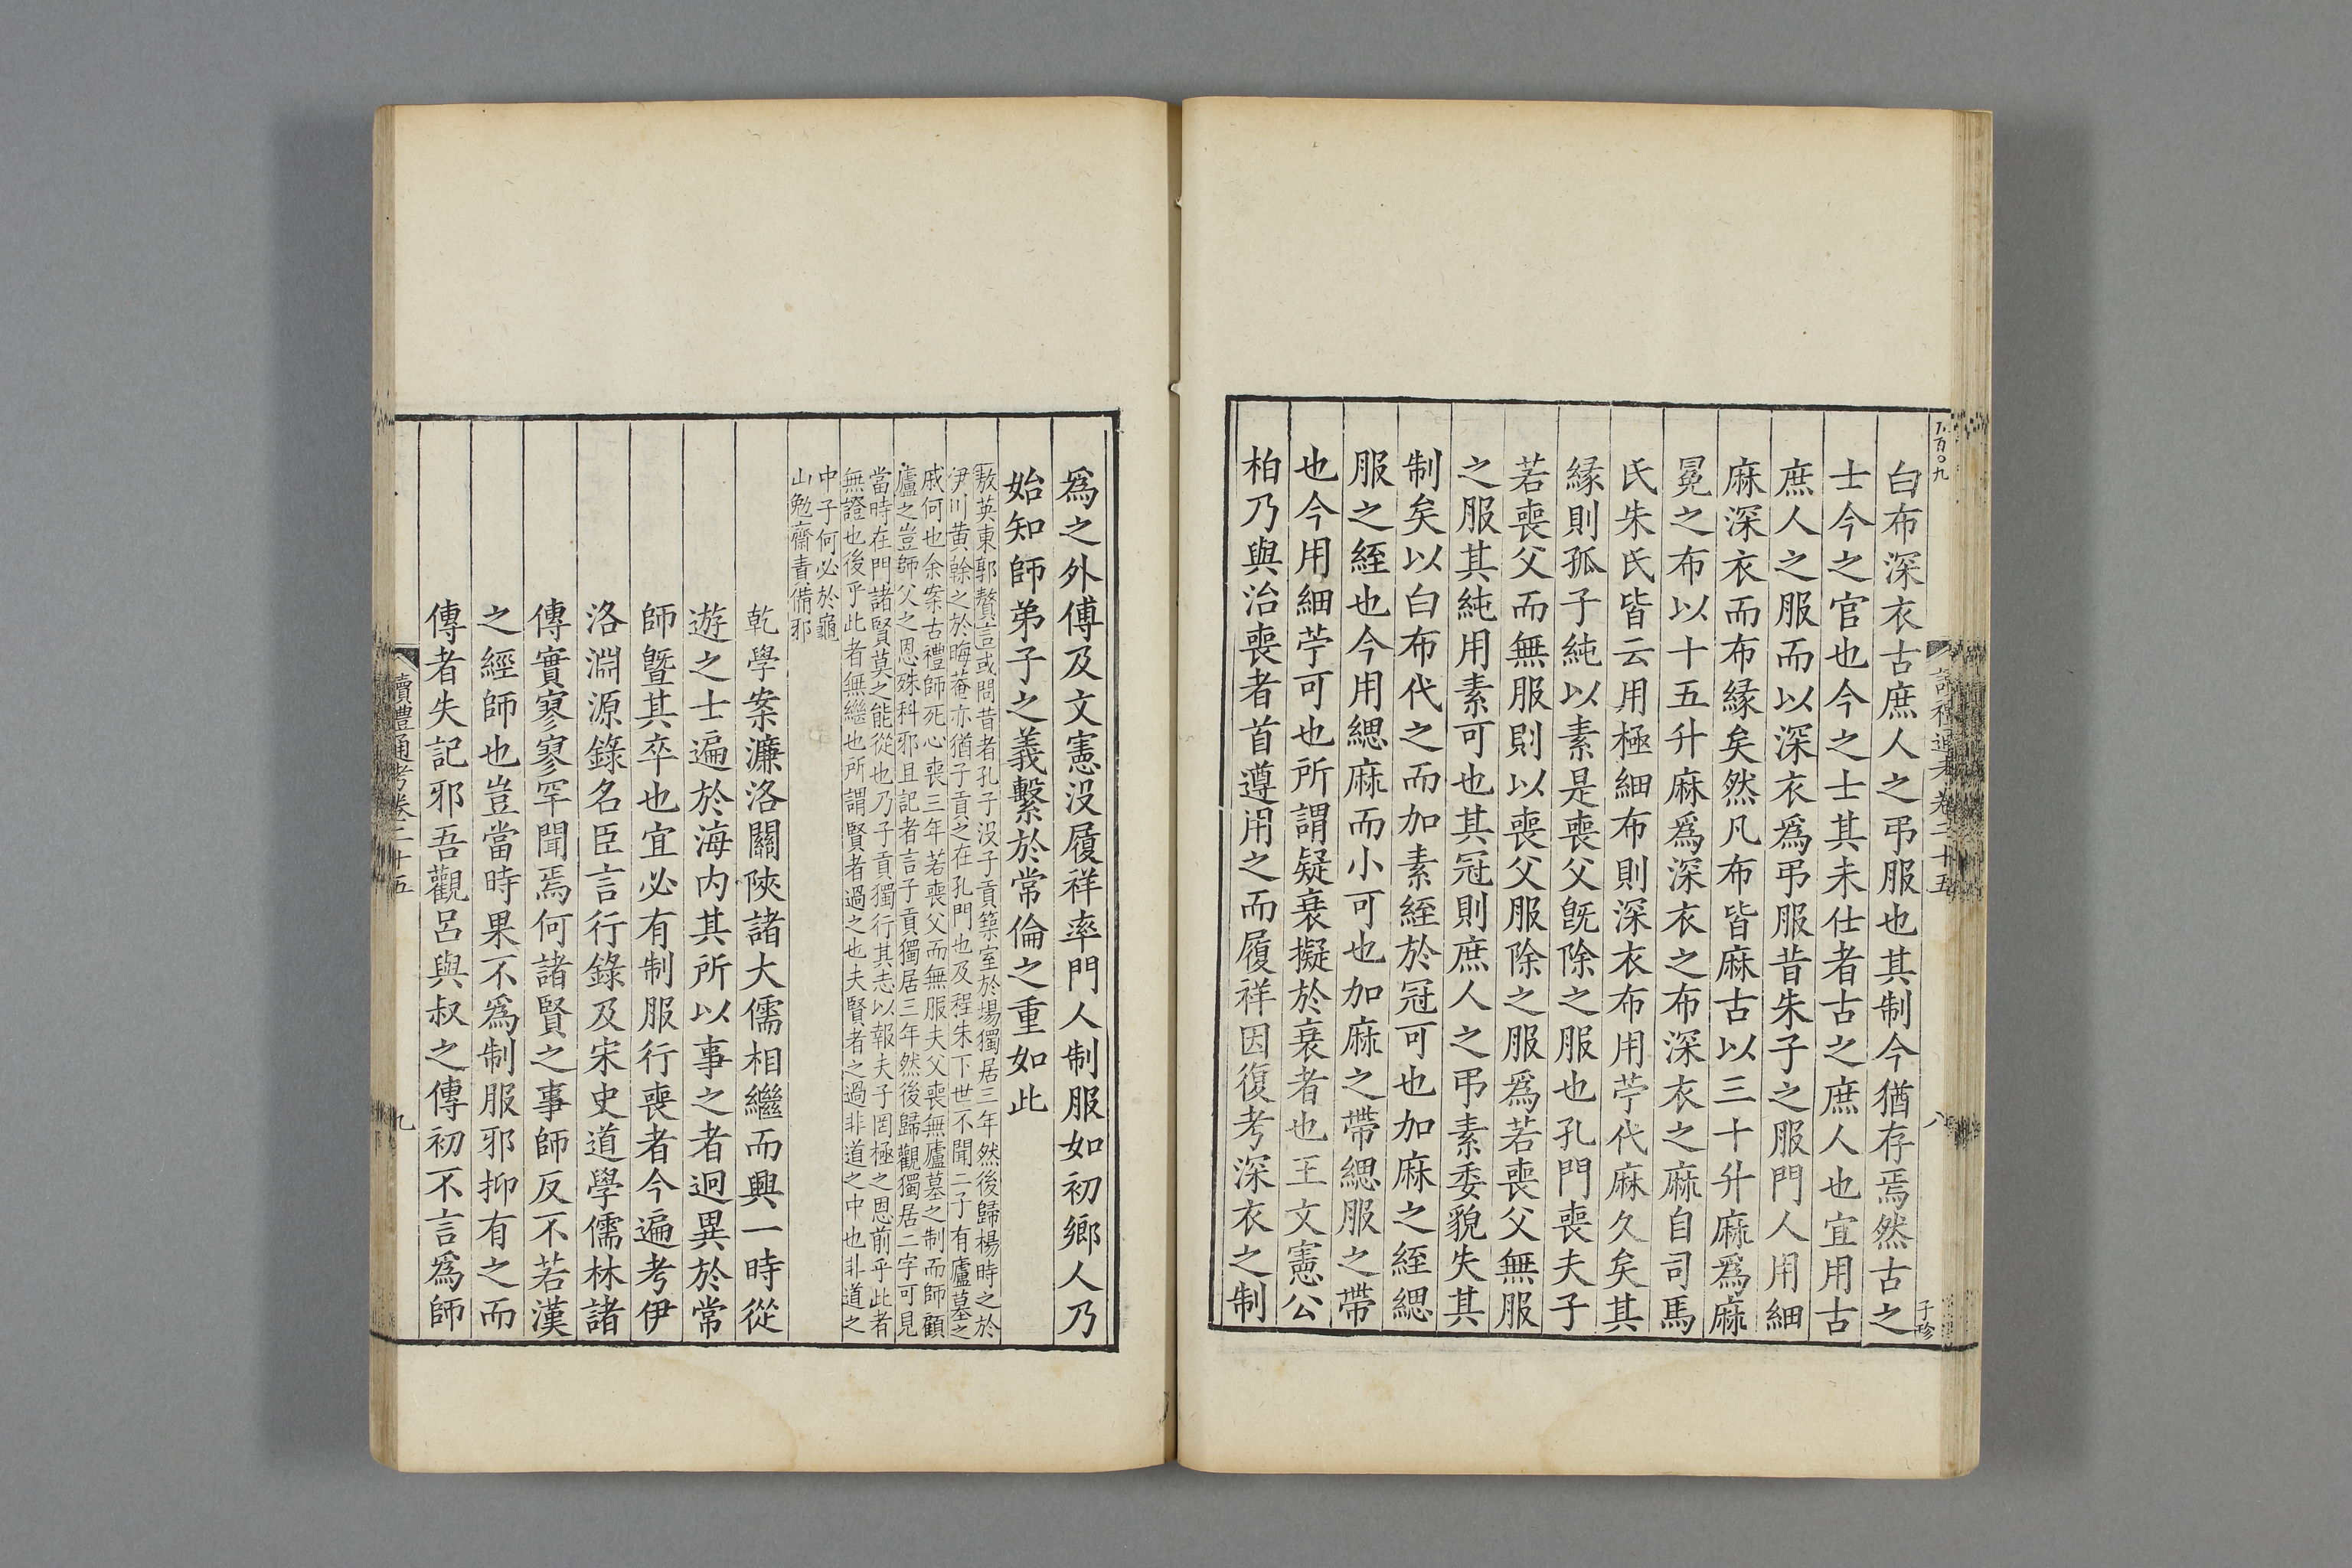 白布深衣古庶人之弔服也其制今猶存焉然古之
士今之官也今之士其未仕者古之庶人也宜用古
庶人之服而以深衣爲弔服昔朱子之服門人用細
麻深衣而布緣矣然凡布皆麻古以三十升麻爲麻
冕之布以十五升麻爲深衣之布深衣之麻自司馬
氏朱氏皆云用極細布則深衣布用苧代麻久矣其
緣則孤子純以素是喪父旣除之服也孔門喪夫子
若喪父而無服則以喪父服除之服爲若喪父無服
之服其純用素可也其冠則庶人之弔素委貌失其
制矣以白布代之而加素絰於冠可也加麻之絰緦
服之絰也今用緦麻而小可也加麻之帶緦服之帶
也今用細苧可也所謂疑衰擬於衰者也王文憲公
柏乃與治喪者首遵用之而履祥因復考深衣之制
讀禮通考卷二十五
八
子珍
爲之外傅及文憲没履祥率門人制服如初鄉人乃
始知師弟子之義繫於常倫之重如此
敖英東郭贅言或問昔者孔子没子貢築室於場獨居三年然後歸楊時之於
伊川黄榦之於晦菴亦猶子貢之在孔門也及程朱下世不聞二子有廬墓之
戚何也余案古禮師死心喪三年若喪父而無服夫父喪無廬墓之制而師顧
廬之豈師父之恩殊科邪且記者言子貢獨居三年然後歸觀獨居二字可見
當時在門諸賢莫之能從也乃子貢獨行其志以報夫子罔極之恩前乎此者
無證也後乎此者無繼也所謂賢者過之也夫賢者之過非道之中也非道之
中子何必於龜
山勉齋責備邪
乾學案濂洛關陝諸大儒相繼而興一時從
遊之士遍於海内其所以事之者迥異於常
師曁其卒也宜必有制服行喪者今遍考伊
洛淵源錄名臣言行錄及宋史道學儒林諸
傳實寥寥罕聞焉何諸賢之事師反不若漢
之經師也豈當時果不爲制服邪抑有之而
傳者失記邪吾觀呂與叔之傳初不言爲師
讀禮通考卷二十五
九